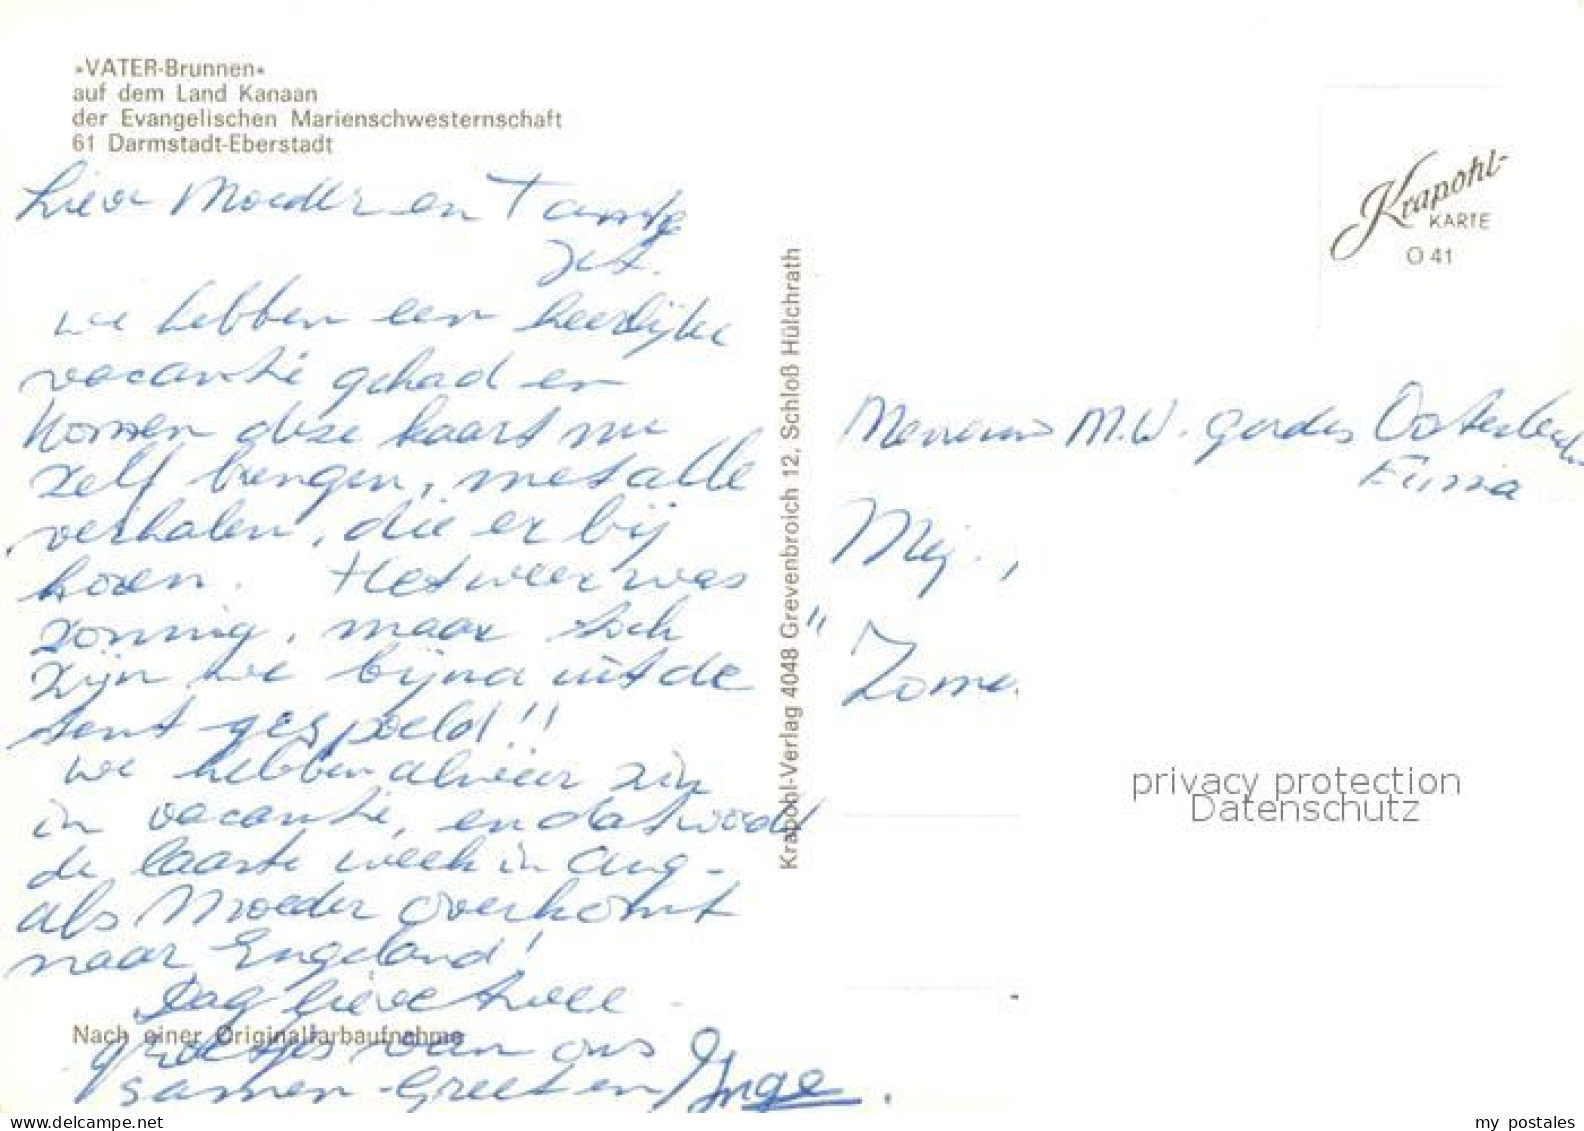 »VATER-Brunnen«
auf dem Land Kanaan
der Evangelischen Marienschwesternschaft
61 Darmstadt-Eberstadt
Lieve Moeder en Tante
Jet.
we hebben een heerlijke
vacantie gehad en
komen deze kaart nu
zelf brengen, met alle
verhalen, die er bij
horen. Het weer was
zonnig, maar toch
zijn we bijna uit de
tent gespoeld!!
we hebben alweer zin
in vacantie, en dat wordt
de laatste week in Aug-
als Moeder overkomt
naar Engeland!
Dag lieve twee
Nach einer Originalfarbaufnahme
groetjes van ons
samen - Greet en Inge.
Krapohl-Verlag 4048 Grevenbroich 12, Schloß Hülchrath
Krapohl-
KARTE
O 41
M.W. Gerdes Oosterbeek
Mej.
"Zome
privacy protection
Datenschutz
my postales